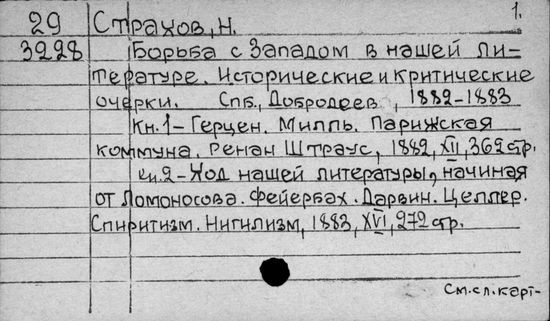 1.
29 Страхов, Н.
3228 Борьба с Западом в нашей ли-
тературе. Исторические и критические
очерки. Спб., Добродеев, 1882-1883
Кн.1- Герцен. Милль. Парижская
коммуна. Ренан Штраус, 1882, XII, 362 стр.
кн.2- Ход нашей литературы, начиная
от Ломоносова. Фейербах. Дарвин. Целлер.
Спиритизм. Нигилизм, 1883, XVI, 272 стр.
См.сл.карт-